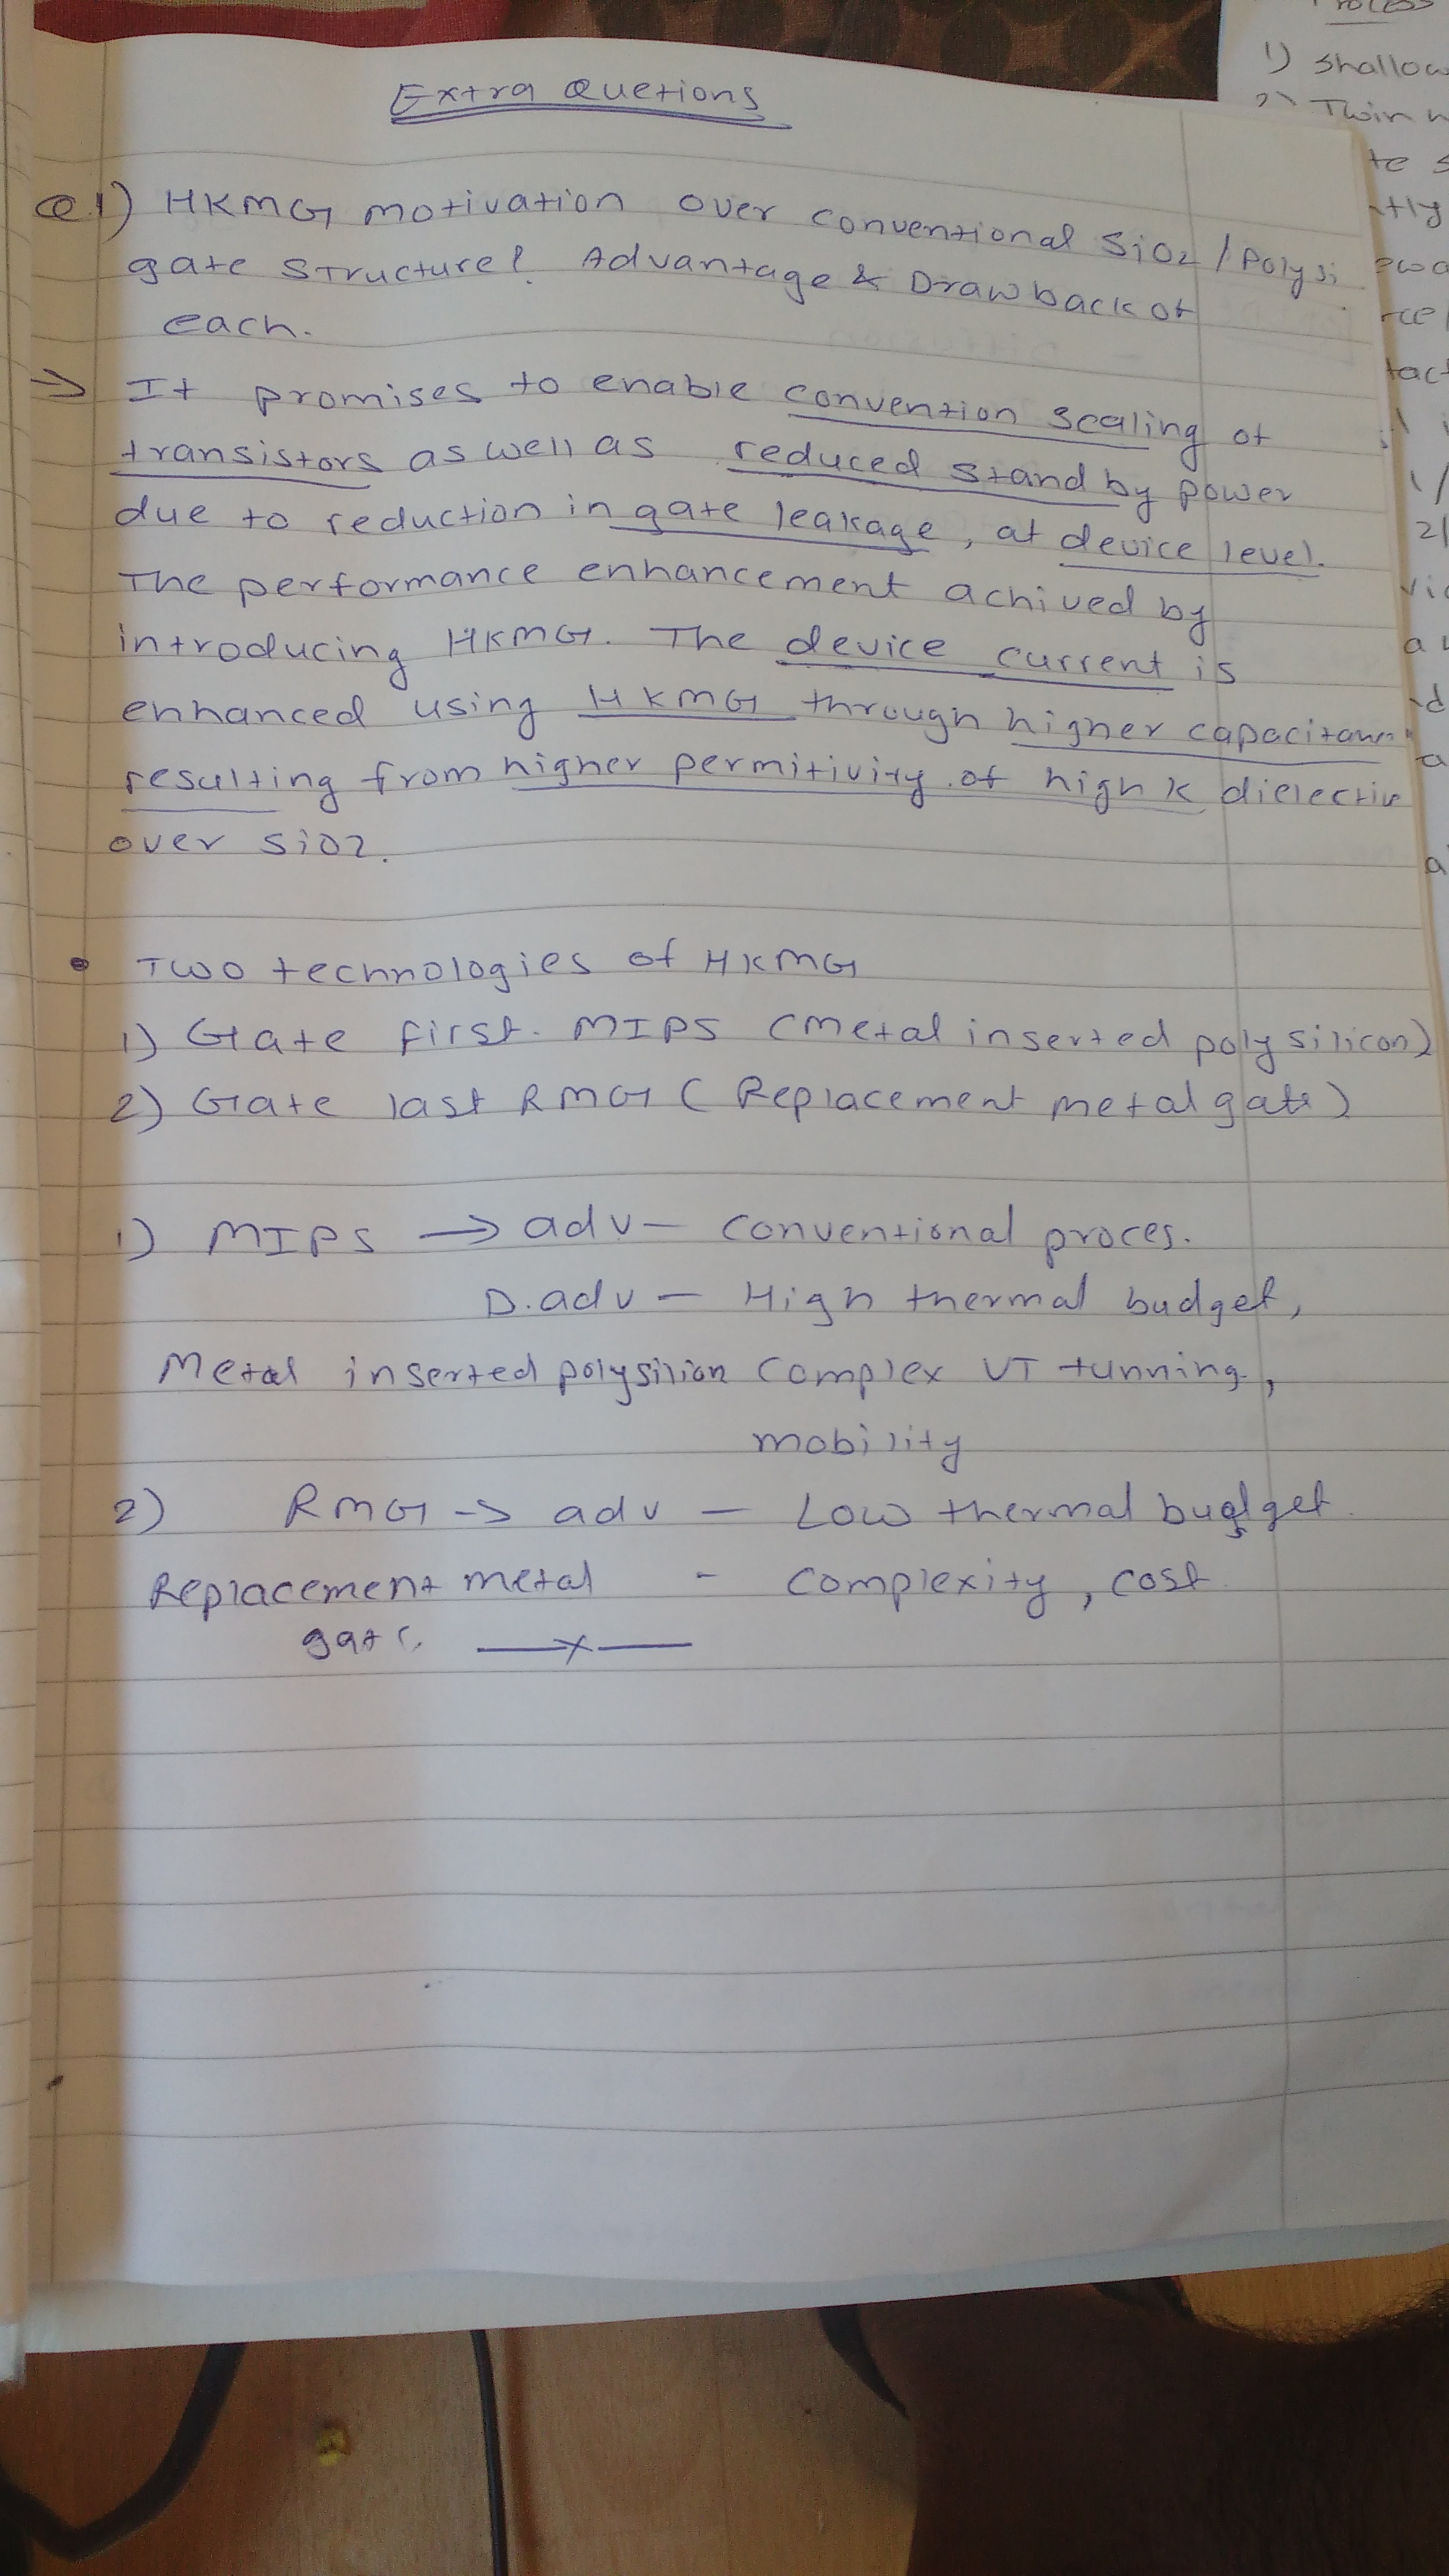 Extra Quetions
Q.1) HKMG motivation over conventional SiO2 / Polysi
gate structure? Advantage & Drawback of
each.
⇒ It promises to enable convention scaling of
transistors as well as reduced stand by power
due to reduction in gate leakage, at device level.
The performance enhancement achived by
introducing HKMG. The device current is
enhanced using HKMG through higher
resulting from higher permitivity of high K
over SiO2.
• Two technologies of HKMG
1) Gate first. MIPS (Metal inserted polysilicon)
2) Gate last RMG ( Replacement metal gate)
1) MIPS → adv — conventional proces.
D.adv — High thermal budget,
Metal inserted polysilion complex VT tunning,
mobility
2) RMG -> adv — Low thermal budget.
Replacement metal - complexity, cost
gate. —x—
Process
1) Shallow
2) Twin